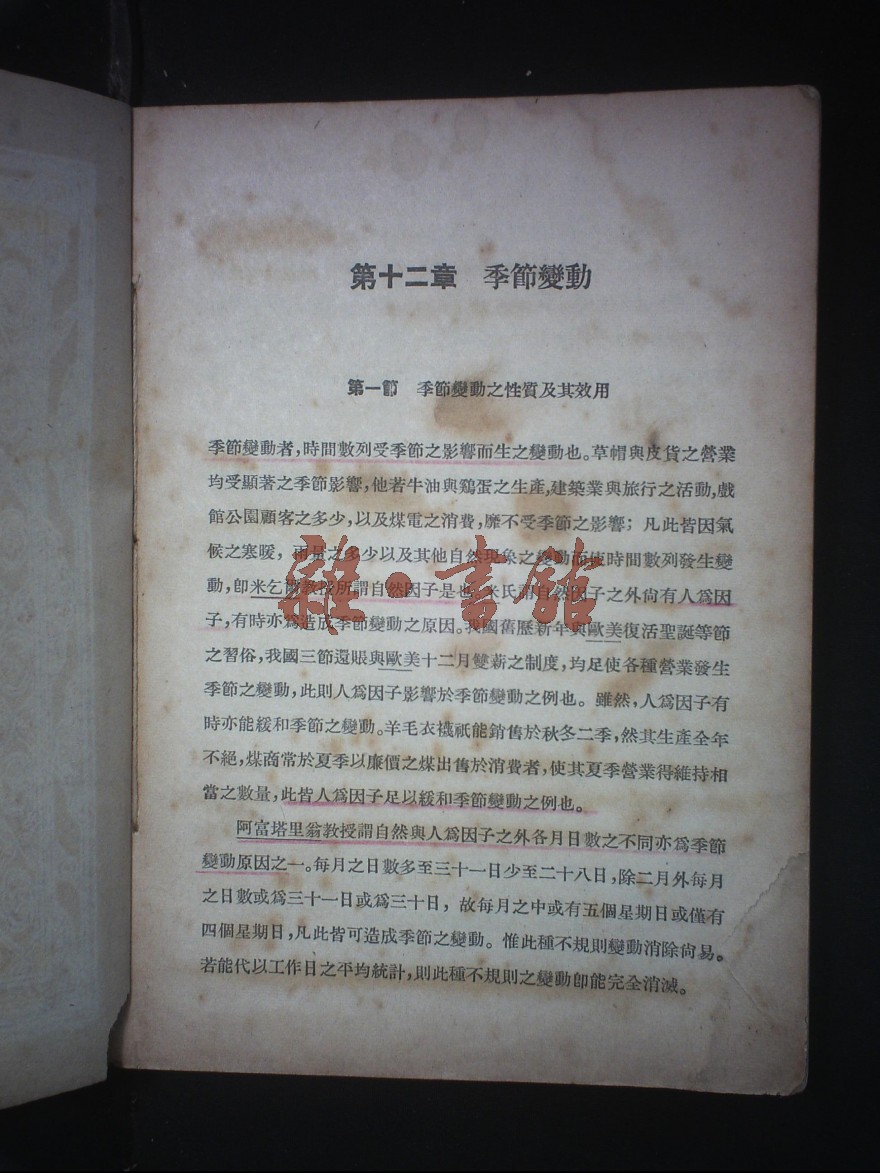 第十二章　季節變動
第一節　季節變動之性質及其效用
季節變動者，時間數列受季節之影響而生之變動也。草帽與皮貨之營業
均受顯著之季節影響，他若牛油與鷄蛋之生產，建築業與旅行之活動，戲
館公園顧客之多少，以及煤電之消費，靡不受季節之影響；凡此皆因氣
候之寒暖，雨量之多少以及其他自然現象之變動而使時間數列發生變
動，卽米乞爾教授所謂自然因子是也。米氏謂自然因子之外尙有人爲因
子，有時亦爲造成季節變動之原因。我國舊歷新年與歐美復活聖誕等節
之習俗，我國三節還賬與歐美十二月雙薪之制度，均足使各種營業發生
季節之變動，此則人爲因子影響於季節變動之例也。雖然，人爲因子有
時亦能緩和季節之變動。羊毛衣襪祇能銷售於秋冬二季，然其生產全年
不絕，煤商常於夏季以廉價之煤出售於消費者，使其夏季營業得維持相
當之數量，此皆人爲因子足以緩和季節變動之例也。
阿富塔里翁教授謂自然與人爲因子之外各月日數之不同亦爲季節
變動原因之一。每月之日數多至三十一日少至二十八日，除二月外每月
之日數或爲三十一日或爲三十日，故每月之中或有五個星期日或僅有
四個星期日，凡此皆可造成季節之變動。惟此種不規則變動消除尙易。
若能代以工作日之平均統計，則此種不規則之變動卽能完全消滅。
雜·書館